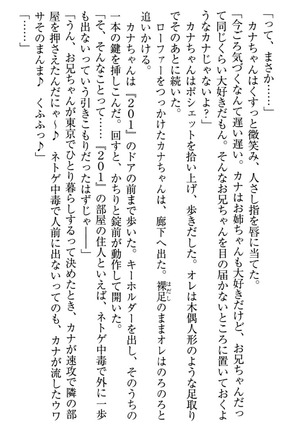 「って、まさか――」
カナちゃんはくすっと微笑み、人さし指を唇に当てた。
「今ごろ気づくなんて遅い遅い。カナはお姉ちゃんも大好きだけど、お兄ちゃんだっ
て同じくらい大好きだもん。そんなお兄ちゃんを目の届かないところに置いておくよ
うなカナじゃないよ？」
カナちゃんはポシェットを拾い上げ、歩きだした。オレは木偶人形のような足取り
でそのあとに続いた。
ローファーをつっかけたカナちゃんは、廊下へ出た。裸足のままオレはのろのろと
追いかける。
カナちゃんは『２０１』のドアの前まで歩いた。キーホルダーを出し、そのうちの
一本の鍵を挿しこんだ。回すと、かちりと錠前が動作して開いた。
「そ、そんなことって……『２０１』の部屋の住人といえば、ネトゲ中毒で外に一歩
も出ないっていう引きこもりだったはずじゃ――」
「うん、お兄ちゃんが東京でひとり暮らしするって決めたとき、カナが速攻で隣の部
屋を押さえたんだにゃ～♪　ネトゲ中毒で人前に出ないってのも、カナが流したウワ
サそのまんま♪　くふふっ♪」
「……」